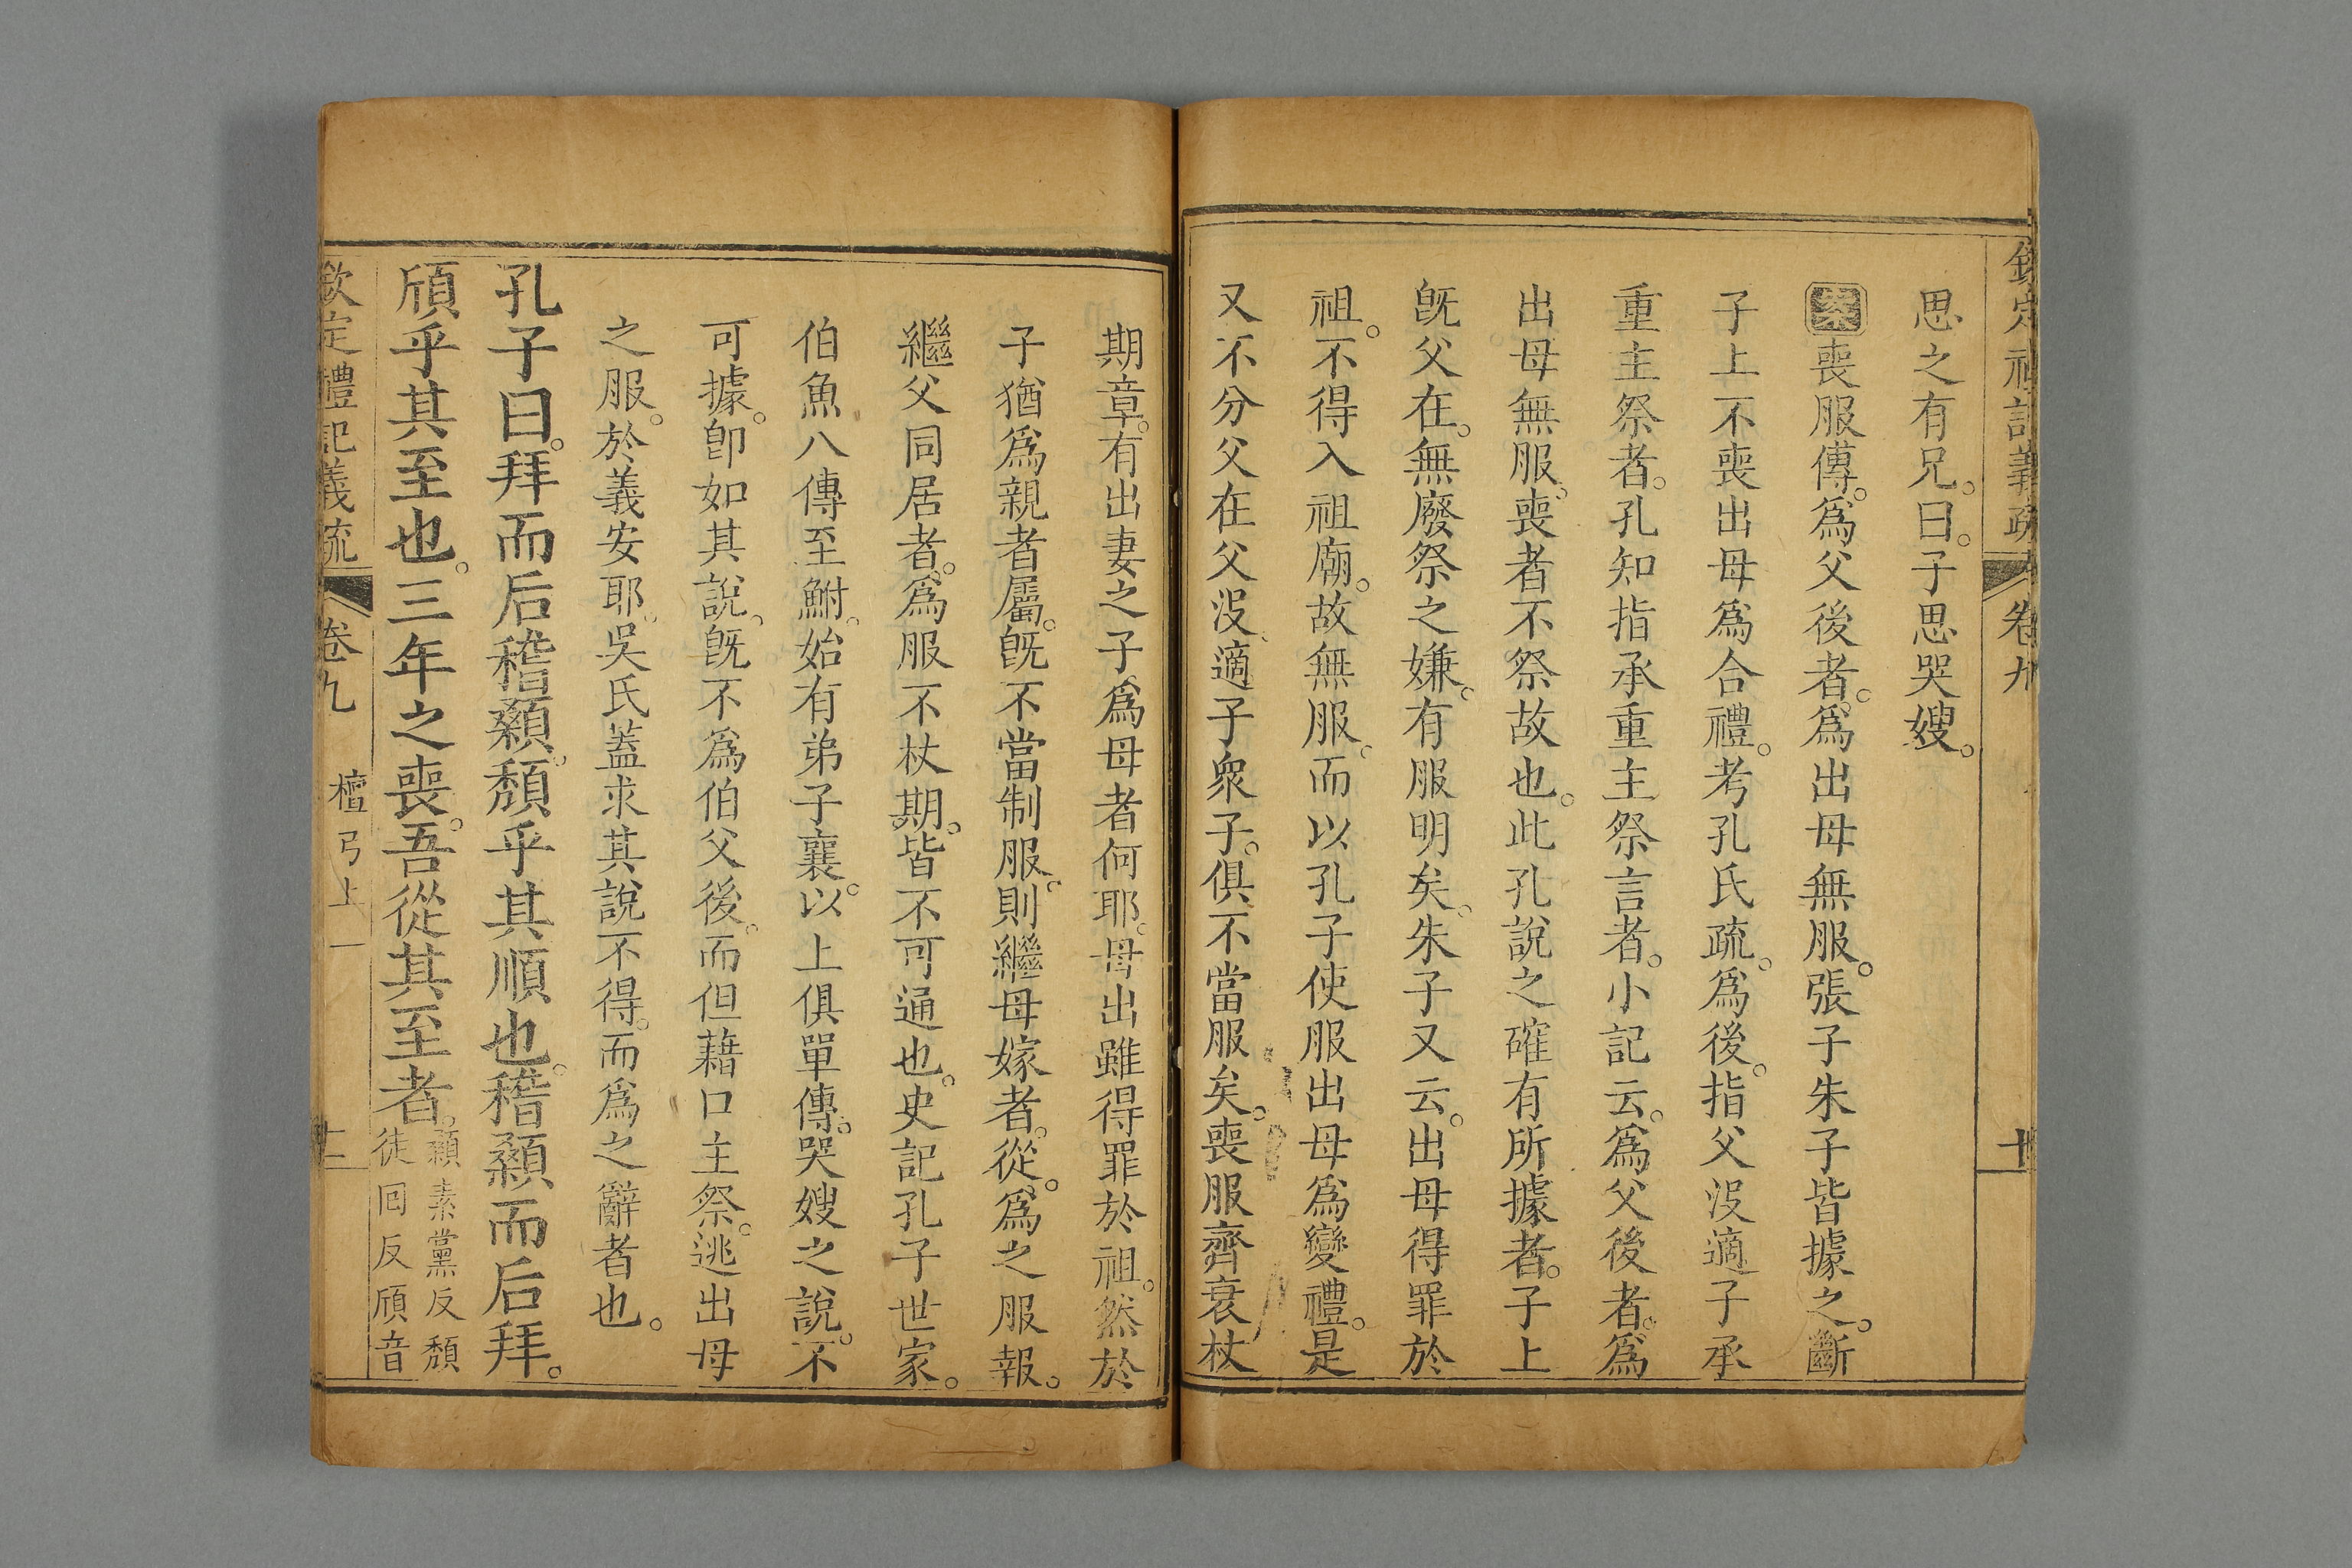 欽定禮記義疏 卷九 十
思之有兄。曰。子思哭嫂。
案喪服傳。爲父後者。爲出母無服。張子朱子皆據之。斷
子上不喪出母爲合禮。考孔氏疏。爲後。指父沒適子承
重主祭者。孔知指承重主祭言者。小記云。爲父後者。爲
出母無服。喪者不祭故也。此孔說之確有所據者。子上
旣父在。無廢祭之嫌。有服明矣。朱子又云。出母得罪於
祖。不得入祖廟。故無服。而以孔子使服出母爲變禮。是
又不分父在父沒適子衆子。俱不當服矣。喪服齊衰杖
期章。有出妻之子爲母者何耶。母出雖得罪於祖。然於
子猶爲親者屬。旣不當制服。則繼母嫁者。從。爲之服報。
繼父同居者。爲服不杖期。皆不可通也。史記孔子世家。
伯魚八傳至鮒。始有弟子襄。以上俱單傳。哭嫂之說。不
可據。卽如其說。旣不爲伯父後。而但藉口主祭。逃出母
之服。於義安耶。吳氏蓋求其說不得。而爲之辭者也。
孔子曰。拜而后稽顙。頽乎其順也。稽顙而后拜。
頎乎其至也。三年之喪。吾從其至者。
顙素黨反頽
徒囘反頎音
欽定禮記義疏 卷九 檀弓上一